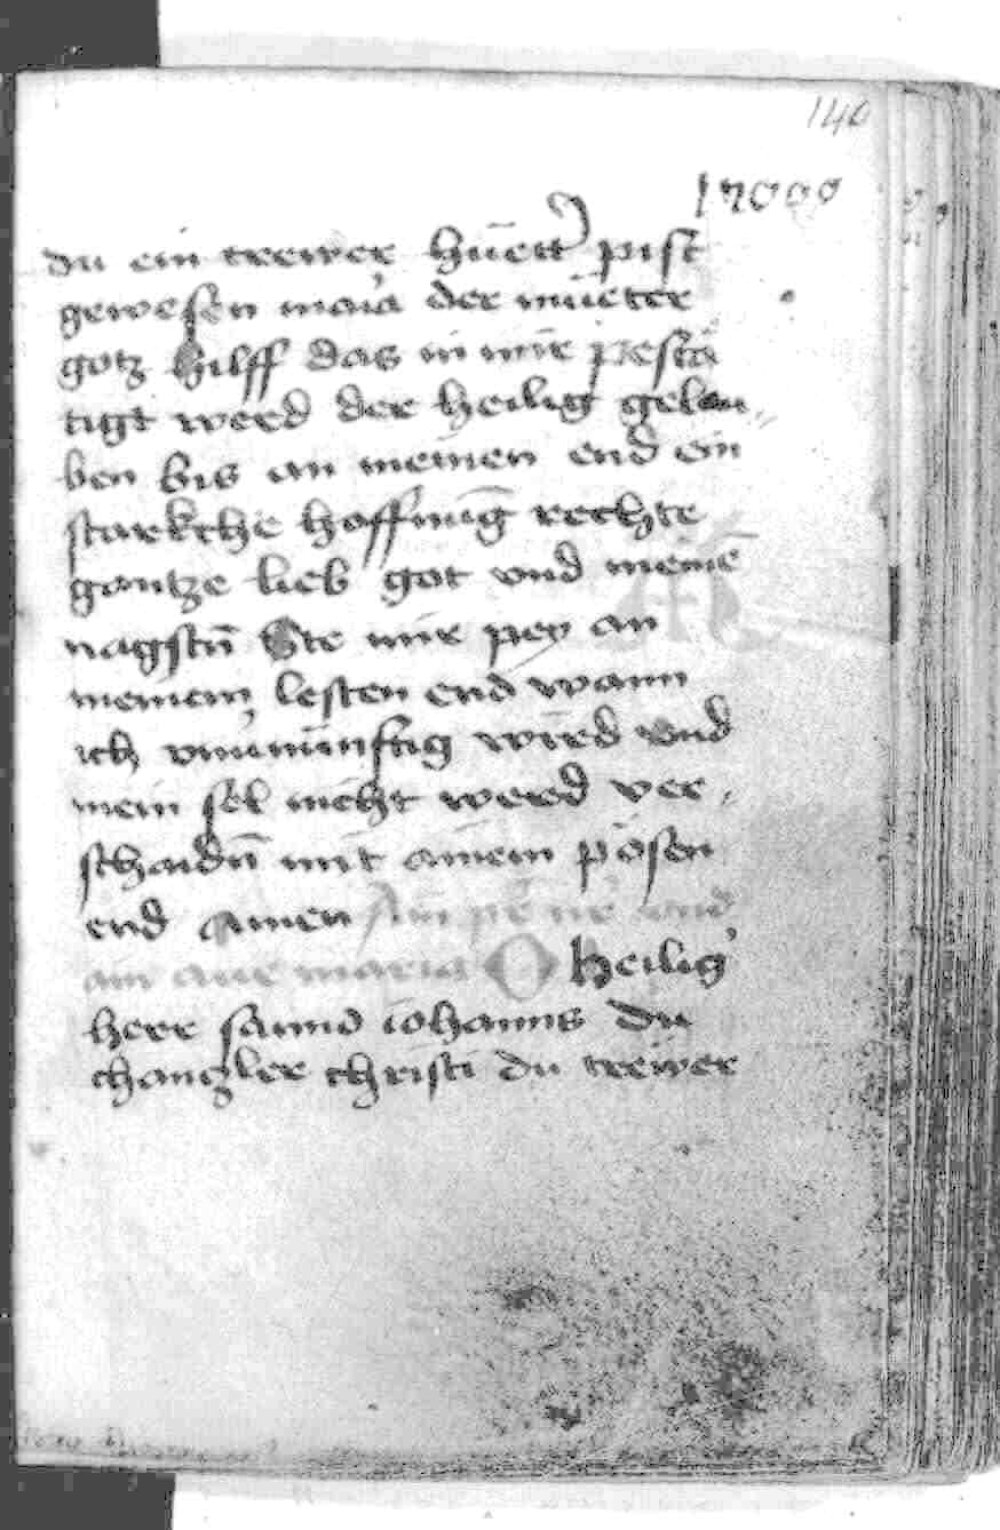 140
17000
du ein trewer hüett pist
gewesen maria der mueter
gotz hilff das in mir pestä
tigt werd der heilig gelau„
ben bis an meinen end ein
starkche hoffnūg rechte
gantze lieb got vnd meinē
nagstn̄ Ste mir pey an
meinem lesten end wann
ich vnuernünfftig wird vnd
mein sel nicht werd ver„
schaidn̄ mit ainem pösen
end Amen Ain pr̄ nr̄ vnd
ain aue maria O heilig'
herr sannd iohanns du
changzler christi du trewer